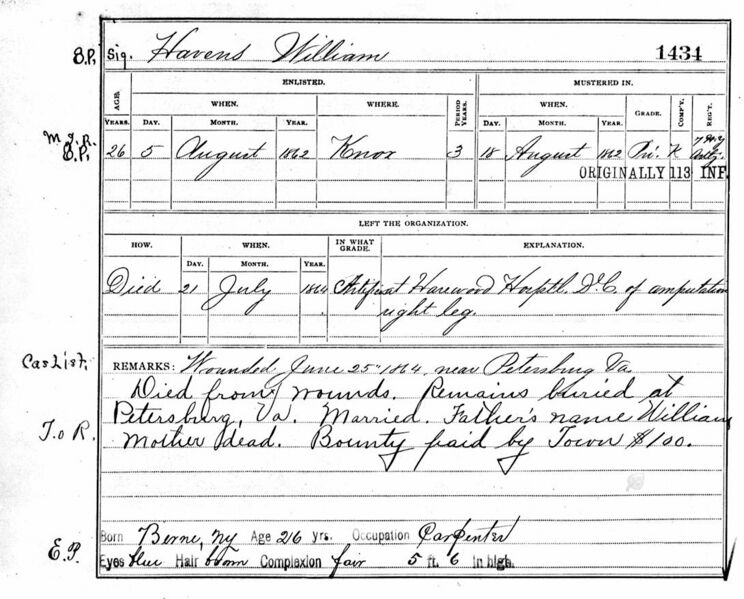 S.P. Sig. Havens William 1434
ENLISTED. MUSTERED IN.
AGE. WHEN. WHERE. PERIOD WHEN. GRADE. COMP'Y. REG'T.
YEARS. DAY. MONTH. YEAR. YEARS. DAY. MONTH. YEAR.
M.I.R.
S.P. 26 5 August 1862 Knox 3 18 August 1862 Pri. K 7 Hvy Artly.
ORIGINALLY 113 INF.
LEFT THE ORGANIZATION.
HOW. WHEN. IN WHAT GRADE. EXPLANATION.
DAY. MONTH. YEAR.
Died 21 July 1864 Artificer at Harewood Hosptl. D.C. of amputation
right leg.
Cas List. REMARKS: Wounded June 25" 1864, near Petersburg Va
Died from wounds. Remains buried at
Petersburg, Va. Married. Father's name William
T. o R. Mother dead. Bounty paid by Town $100.
Born Berne, NY Age 26 yrs. Occupation Carpenter
E.P. Eyes blue Hair brown Complexion fair 5 ft. 6 in high.